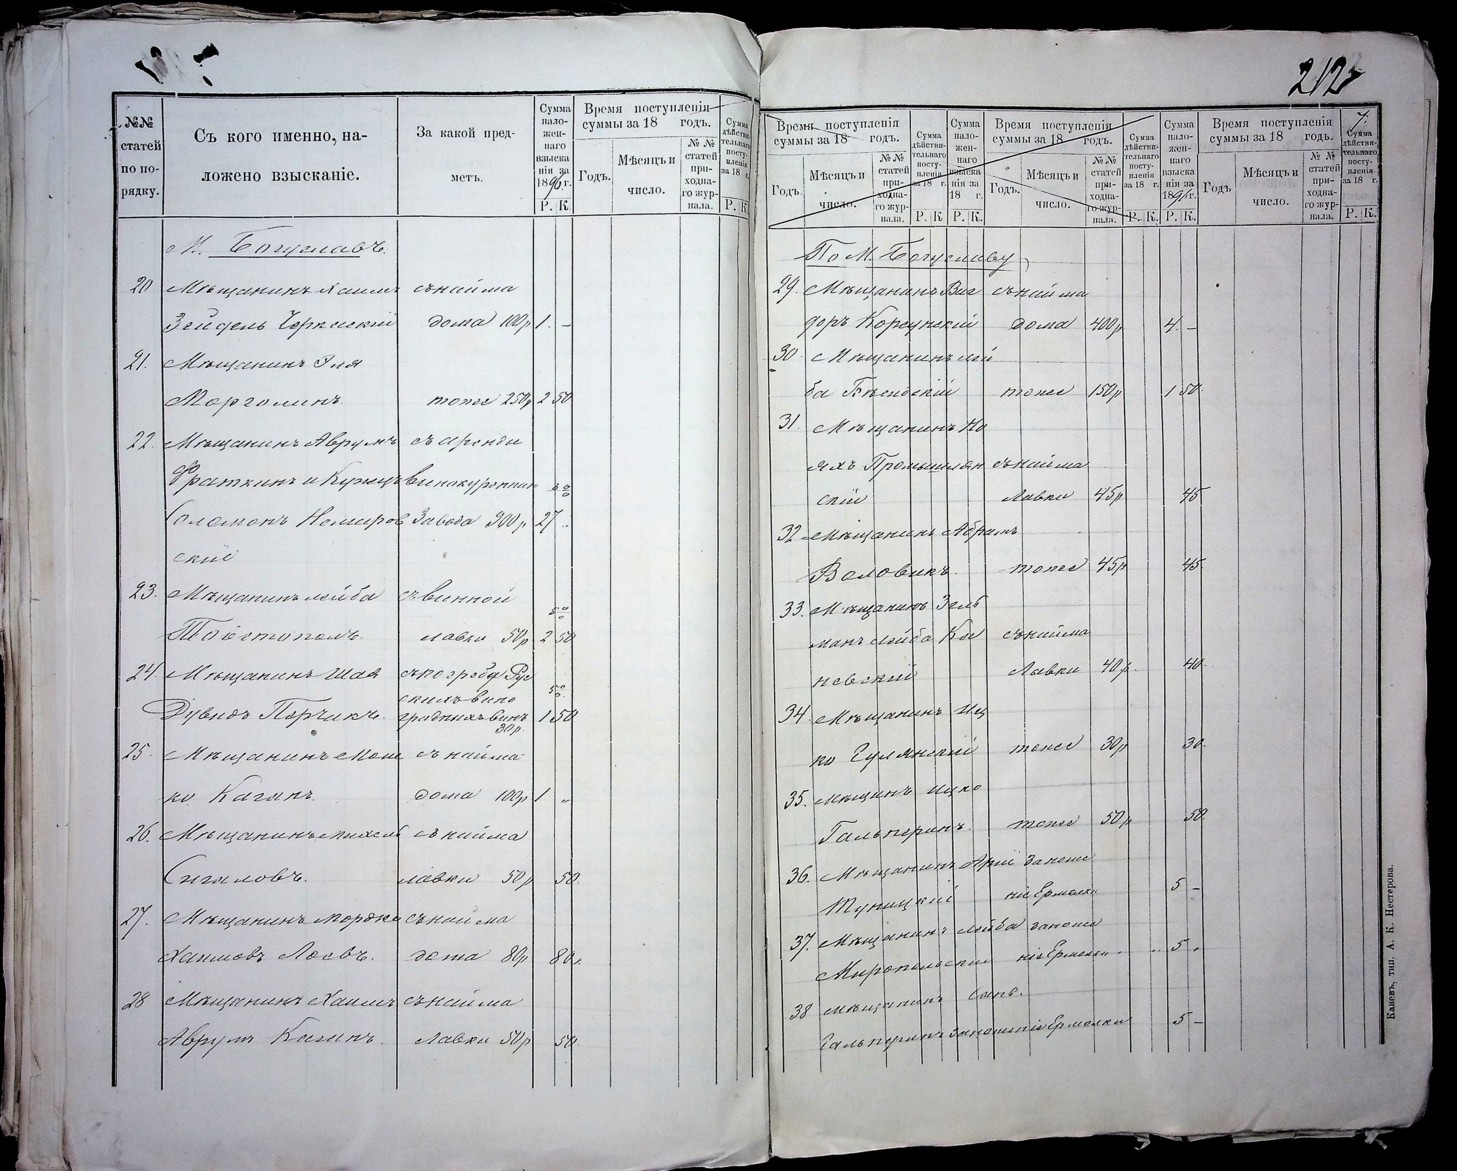 212
7.
№№ статей по порядку.
Съ кого именно, наложено взысканіе.
За какой предметъ.
Сумма наложеннаго взысканія за 1896 г.
Р. К.
Время поступленія суммы за 18 годъ.
Годъ.
Мѣсяцъ и число.
№№ статей приходнаго журнала.
Сумма дѣйствительнаго поступленія за 18 г.
Р. К.
М. Богуславъ.
20 Мѣщанинъ Хаимъ съ найма
Зейдель Черкаскій дома 100р 1. –
21. Мѣщанинъ Эля
Марголинъ тоже 250р 2 50
22. Мѣщанинъ Аврумъ съ аренды
Фраткинъ и Купецъ винокуреннаго
Соломонъ Немиров завода 900р 27 .
скій
23. Мѣщанинъ Лейба съ винной
лавки 50р 2 50
24. Мѣщанинъ съ погреба Рус
скихъ вино
Дувидъ градныхъ винъ 1 50
30р.
25. Мѣщанинъ Мош съ найма
ко Каганъ дома 100р 1 „
26. Мѣщанинъ съ найма
Сигаловъ. лавки 50р 50.
27. Мѣщанинъ Мордко съ найма
Хаимовъ Лоевъ. дома 80р 80.
28 Мѣщанинъ Хаимъ съ найма
Аврумъ Каганъ лавки 50р 50.
Время поступленія суммы за 18 годъ.
Годъ.
Мѣсяцъ и число.
№№ статей приходнаго журнала.
Сумма дѣйствительнаго поступленія за 18 г.
Р. К.
Сумма наложеннаго взысканія за 18 г.
Р. К.
Время поступленія суммы за 18 годъ.
Годъ.
Мѣсяцъ и число.
№№ статей приходнаго журнала.
Сумма дѣйствительнаго поступленія за 18 г.
Р. К.
Сумма наложеннаго взысканія за 1896 г.
Р. К.
Время поступленія суммы за 18 годъ.
Годъ
Мѣсяцъ и число.
№№ статей приходнаго журнала.
Сумма дѣйствительнаго поступленія за 18 г.
Р. К.
По М. Богуславу
29. Мѣщанинъ Виг съ найма
доръ Корсунскій дома 400р 4. –
30. Мѣщанинъ Лей
ба тоже 150р 1 50.
31. Мѣщанинъ Но
яхъ Промышлян съ найма
скій лавки 45р 45
32 Мѣщанинъ Абрамъ
Воловикъ. тоже 45р 45.
33. Мѣщанинъ Зель
манъ Лейба Ка съ найма
невскій лавки 40р. 40.
34. Мѣщанинъ Иц
ко Гулянскій тоже 30р 30.
35. Мѣщинъ Ицко
Гальперинъ. тоже 50р 50.
36. Мѣщанинъ Арій за ноше
Туницкій ніе Ермолки 5 –
37. Мѣщанинъ Лейба за ноше
Миропольскій ніе Ермолки 5 .
38 Мѣщанинъ
Гальперинъ за ношеніе Ермолки 5 –
Каневъ, тип. А. К. Нестерова.